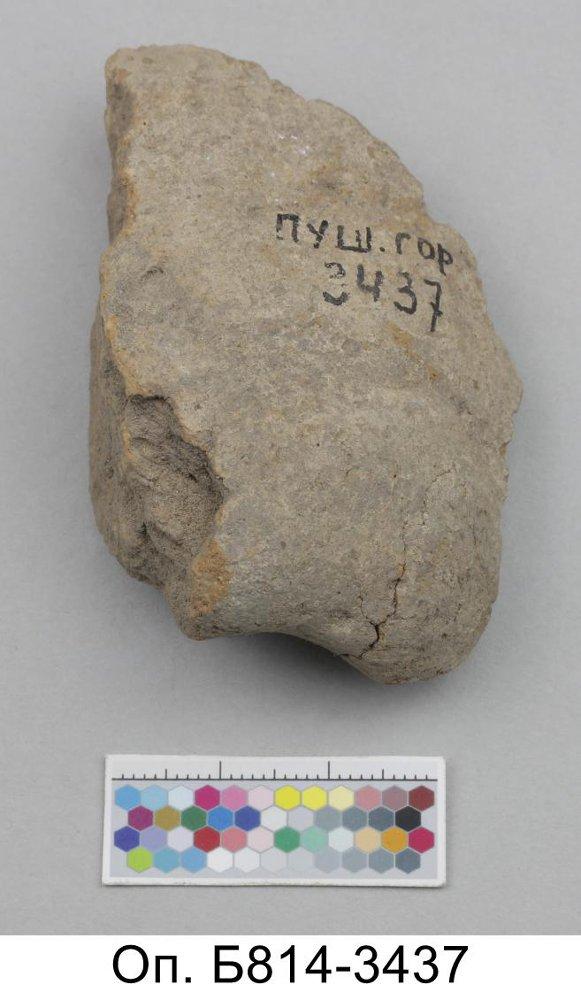 ПУШ.ГОР
3437
Оп. Б814-3437